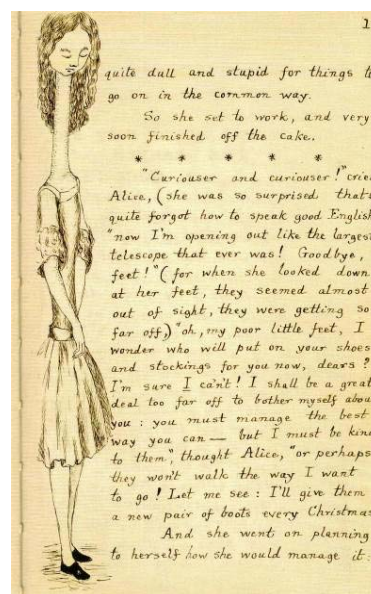 1
quite dull and stupid for things t
go on in the common way.
So she set to work, and very
soon finished off the cake.
* * * * *
"Curiouser and curiouser!" crie
Alice, (she was so surprised that
quite forgot how to speak good English
"now I'm opening out like the larges
telescope that ever was! Goodbye,
feet!" (for when she looked down
at her feet, they seemed almost
out of sight, they were getting so
far off,) "oh, my poor little feet, I
wonder who will put on your shoes
and stockings for you now, dears?
I'm sure I can't! I shall be a great
deal too far off to bother myself abou
you: you must manage the best
way you can — but I must be kin
to them", thought Alice, "or perhaps
they won't walk the way I want
to go! Let me see: I'll give them
a new pair of boots every Christmas
And she went on planning
to herself how she would manage it: